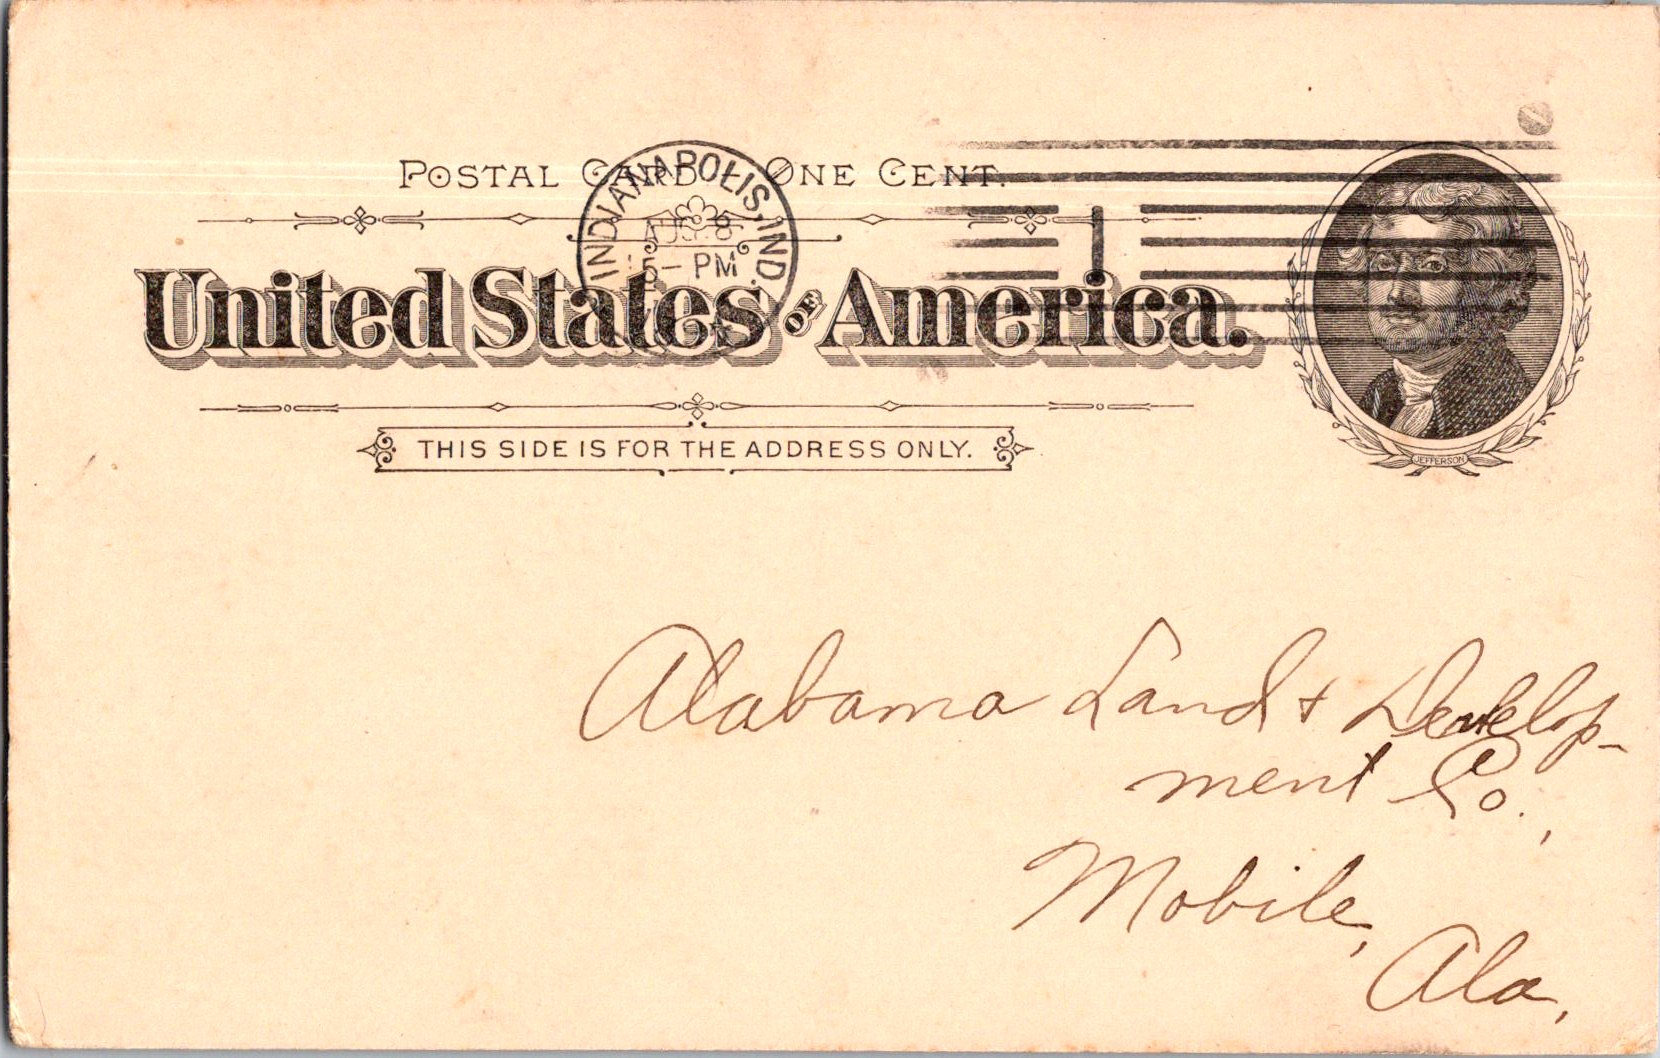 POSTAL CARD ONE CENT.
INDIANAPOLIS, IND.
AUG 8
5-PM
1
United States OF America.
JEFFERSON
THIS SIDE IS FOR THE ADDRESS ONLY.
Alabama Land + Develop-
ment Co.,
Mobile,
Ala,